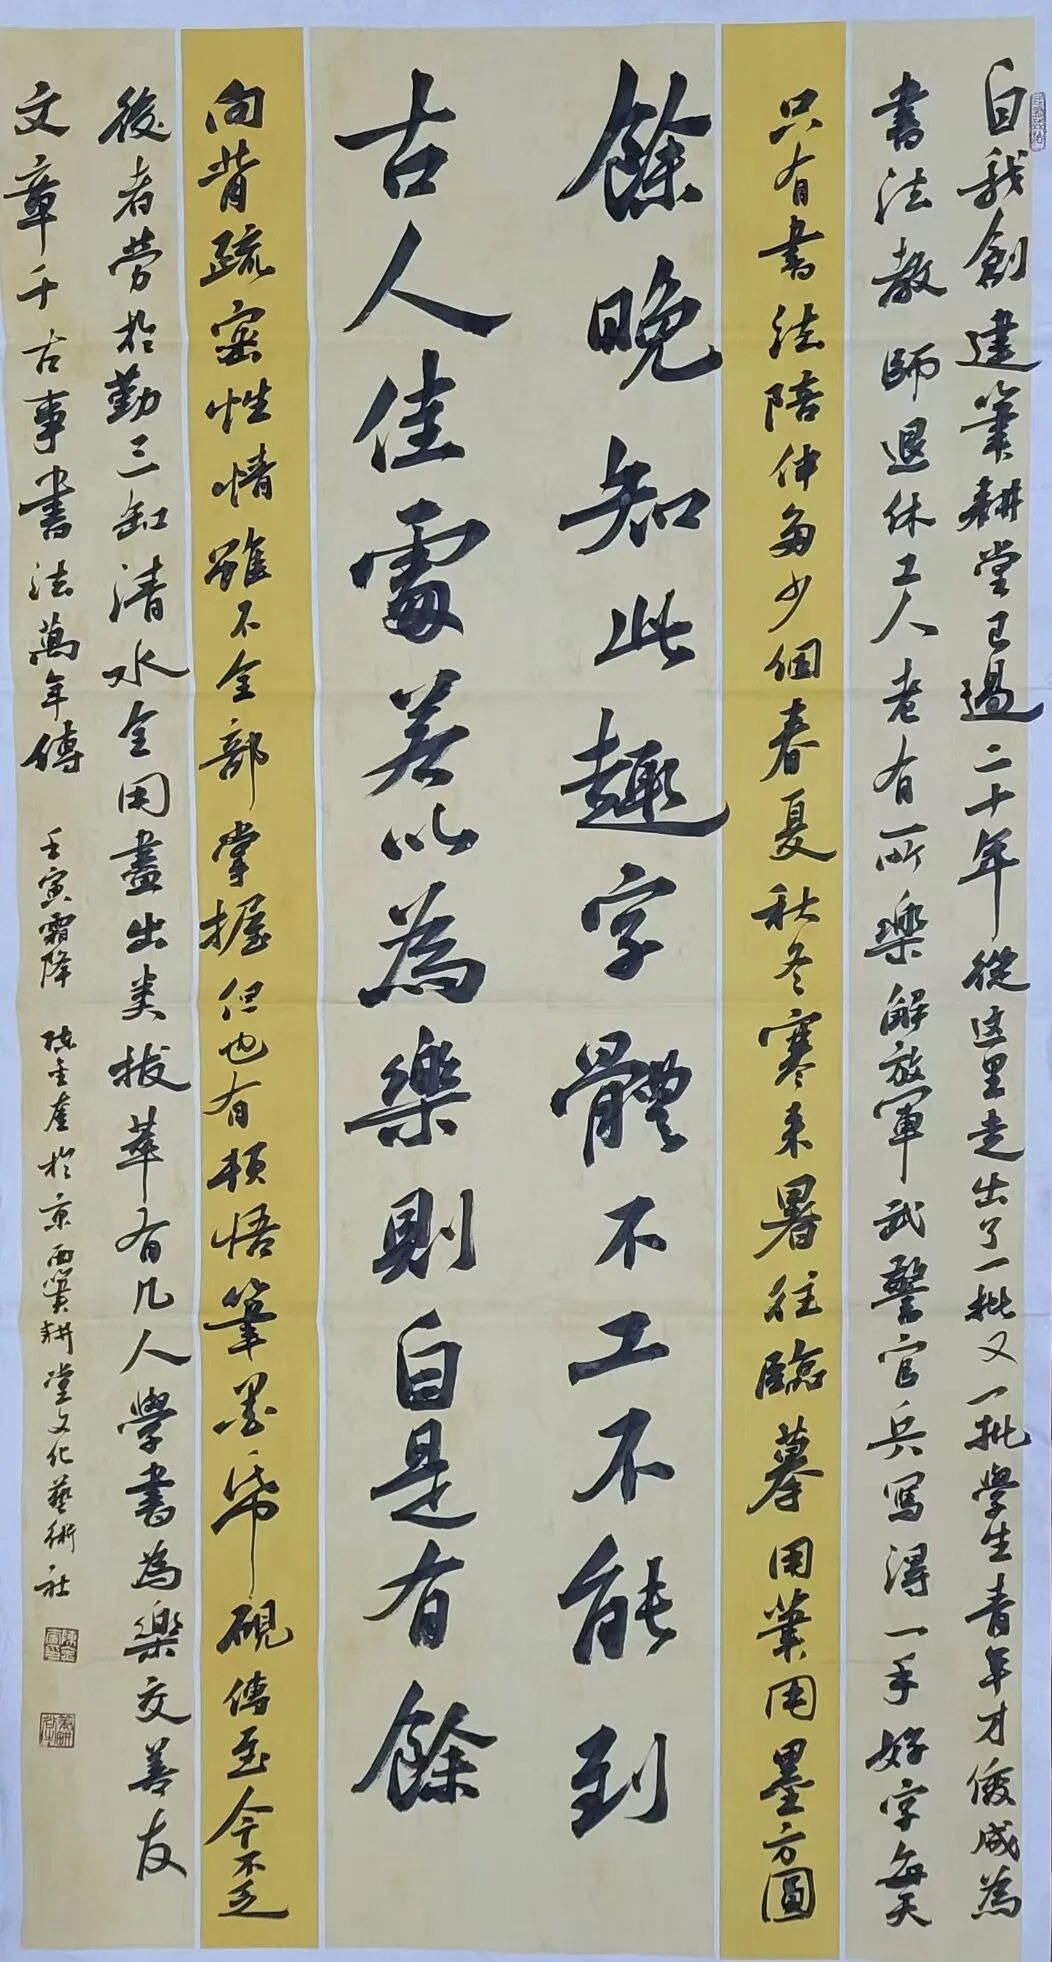 自我創建筆耕堂已過二十年從这里走出了一批又一批學生青年才俊成為
書法教師退休工人老有所樂解放軍武警官兵寫得一手好字每天
只有書法陪伴多少個春夏秋冬寒来暑往臨摹用筆用墨方圓
餘晚知此趣字體不工不能到
古人佳處若以為樂則自是有餘
向背疏密性情雖不全部掌握但也有頓悟筆墨紙硯傳至今不乏
後者勞於勤三缸清水全用盡出类拔萃有几人學書為樂交善友
文章千古事書法萬年傳
壬寅霜降 陈金奎於京西冀耕堂文化藝術社